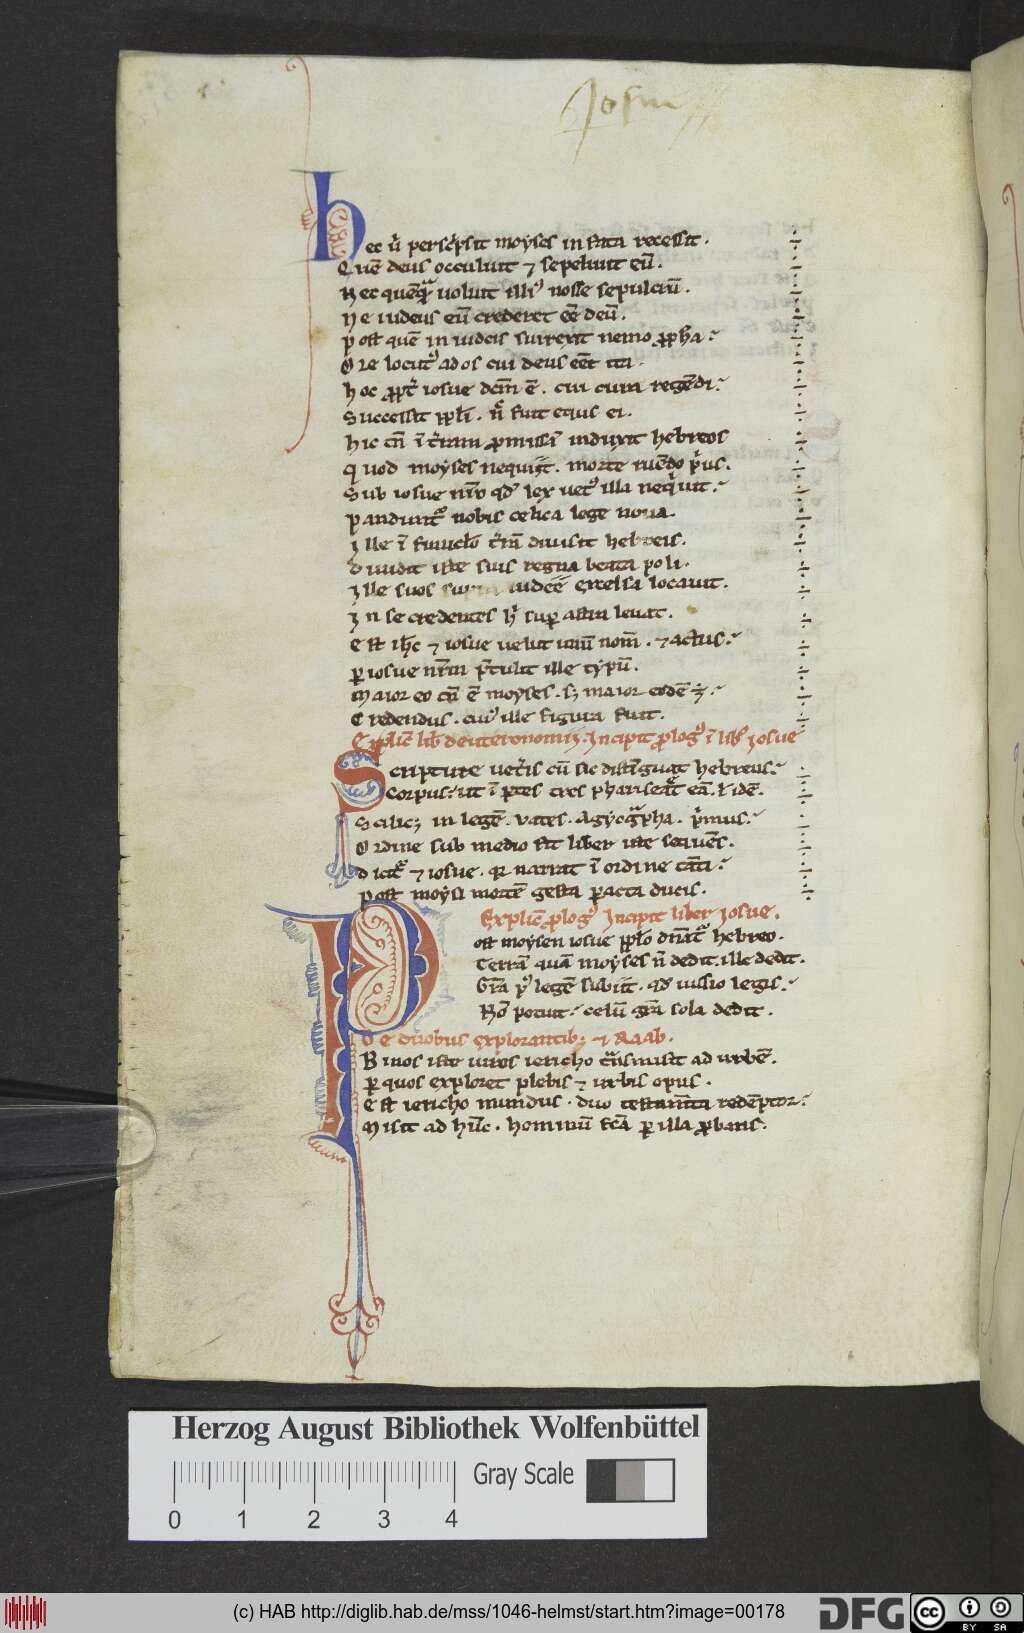 Josue
Hec ũ perscͥpsit moyses in fata recessit.
Quẽ deus occuluit ⁊ sepeliuit eũ.
Nec quẽqͣ uoluit illiꝰ nosse sepulcrũ.
Ne iudeus eũ crederet eẽ deũ.
Post quẽ in iudeis surrexit nemo ꝓpha
Ore locutꝰ ad os cui deus eẽt ita.
Hoc ꝓpt̾ iosue dc̃m ẽ. cui cura regẽdi
Successit ppl̃i. ñ fuit etius ei.
Hic cũ ĩ t̾ram ꝓmissã induxit hebreos
Quod moyses nequiit. morte ruẽdo pͥus.
Sub iosue nr̃o qd̾ lex uetꝰ illa neqͥuit
Pandunt᷑ nobis celica lege noua.
Ille ĩ funicl̃o t̾rã diuisit hebreis.
Diuidit iste suis regna beata poli.
Ille suos iudeẽ excelsa locauit.
In se credentes hͥ suꝑ astra leuat.
Est ihc̃ ⁊ iosue uelut unũ nom̃. ⁊ actus
Per iosue nr̃m p̃tulit ille typũ.
Maior eo cũ ẽ moyses. sꝫ maior eodẽ
Credendus. cuiꝰ ille figura fuit.
Explic̃ lib̾ deuteronomii. Incipit ꝓlogꝰ ĩ lib̾ Iosue
Scripture uet̾is cũ sic distĩguat hebreus
Corpus. ut ĩ ꝑtes tres phariseat᷑ eã. ł idẽ.
Scilicꝫ in legẽ. vates. agyogͣpha. pͥmus
Ordine sub medio fit liber iste sequẽs.
Dicit᷑ ⁊ iosue. qꝛ narrat ĩ ordine tãti
Post moysi mortẽ gesta ꝑacta ducis.
Explic̃ ꝓlogꝰ Incipit liber Iosue.
Post moysen iosue ppl̃o dñat᷑ hebreo.
Terrã quã moyses ñ dedit. ille dedit.
Gr̃a pꝰ legẽ subiit. qd̾ iussio legis
Nõ potuit. celũ gr̃a sola dedit.
De duobus explorantibꝫ ⁊ Raab.
Binos iste uiros iericho tͣnsmisit ad urbẽ.
Per quos exploret plebis ⁊ urbis opus.
Est iericho mundus. duo testam̃ta redẽptor
Misit ad hũc. hominũ fc̃a ꝑ illa ꝓbans.
Herzog August Bibliothek Wolfenbüttel
Gray Scale
0 1 2 3 4
(c) HAB http://diglib.hab.de/mss/1046-helmst/start.htm?image=00178
DFG
cc BY SA